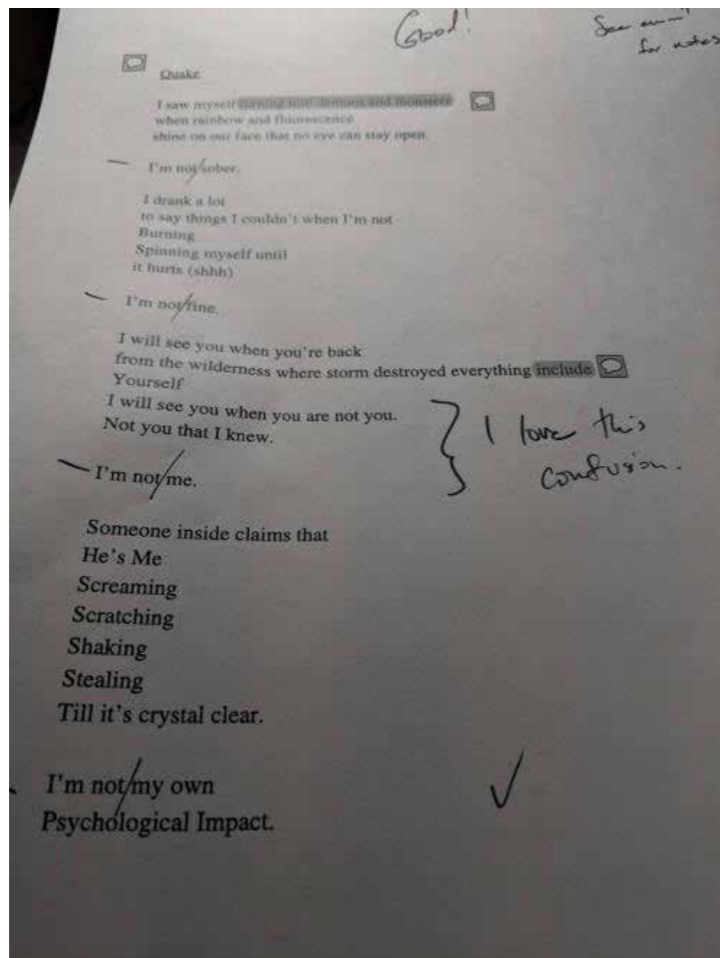 Good!
for notes
Quake
I saw myself turning into demons and monsters
when rainbow and fluorescence
shine on our face that no eye can stay open.
I'm not/sober.
I drank a lot
to say things I couldn't when I'm not
Burning
Spinning myself until
it hurts (shhh)
I'm not/fine.
I will see you when you're back
from the wilderness where storm destroyed everything include
Yourself
I will see you when you are not you.
Not you that I knew.
I love this
confusion.
I'm not/me.
Someone inside claims that
He's Me
Screaming
Scratching
Shaking
Stealing
Till it's crystal clear.
I'm not/my own
Psychological Impact.